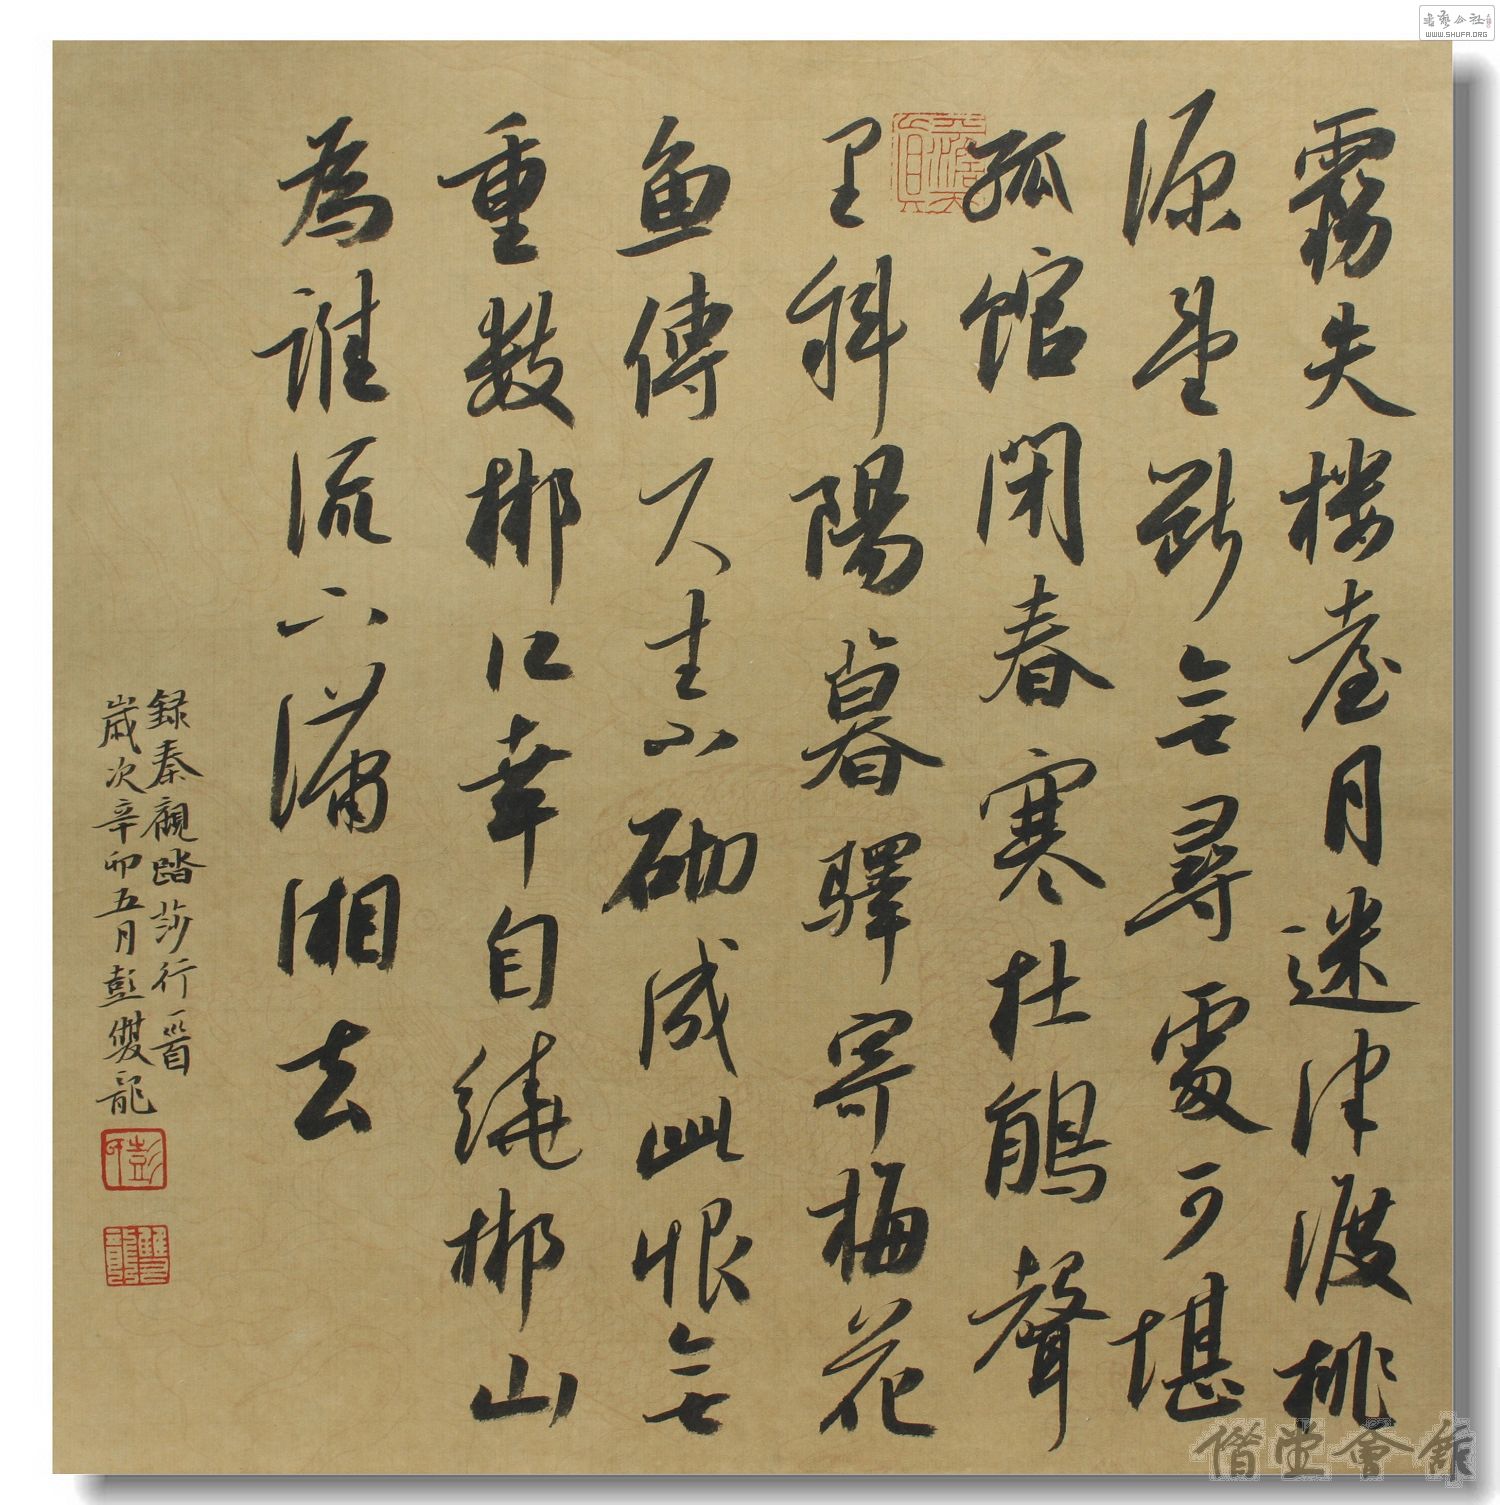 霧失樓臺月迷津渡桃
源望斷無尋處可堪
孤館閉春寒杜鵑聲
里斜陽暮驛寄梅花
魚傳尺素砌成此恨無
重數郴江幸自繞郴山
為誰流下瀟湘去
録秦觀踏莎行一首
歲次辛卯五月彭雙龍
彭印
雙龍
WWW.SHUFA.ORG